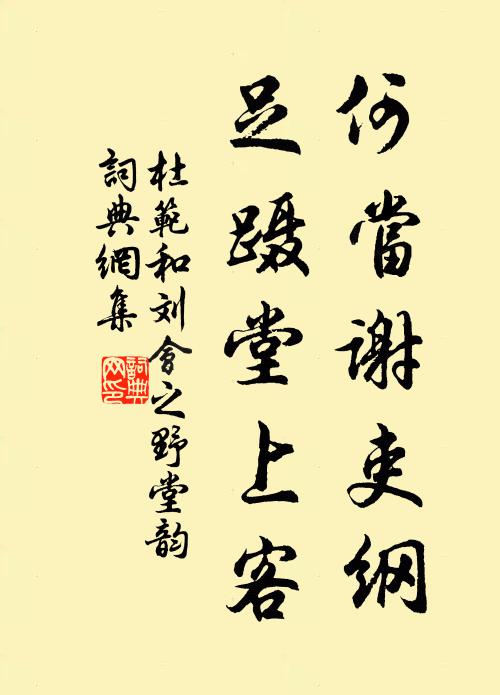 何當谢吏纲
足蹑堂上客
杜範和刘會之野堂韵
詞典網集
詞典
网印